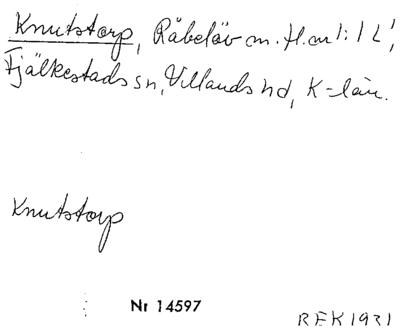 Knutstorp, Råbelöv m. fl. m 1:1 L',
Fjälkestads sn, Villands hd, K-län.
Knutstorp
Nr 14597
REK 1931